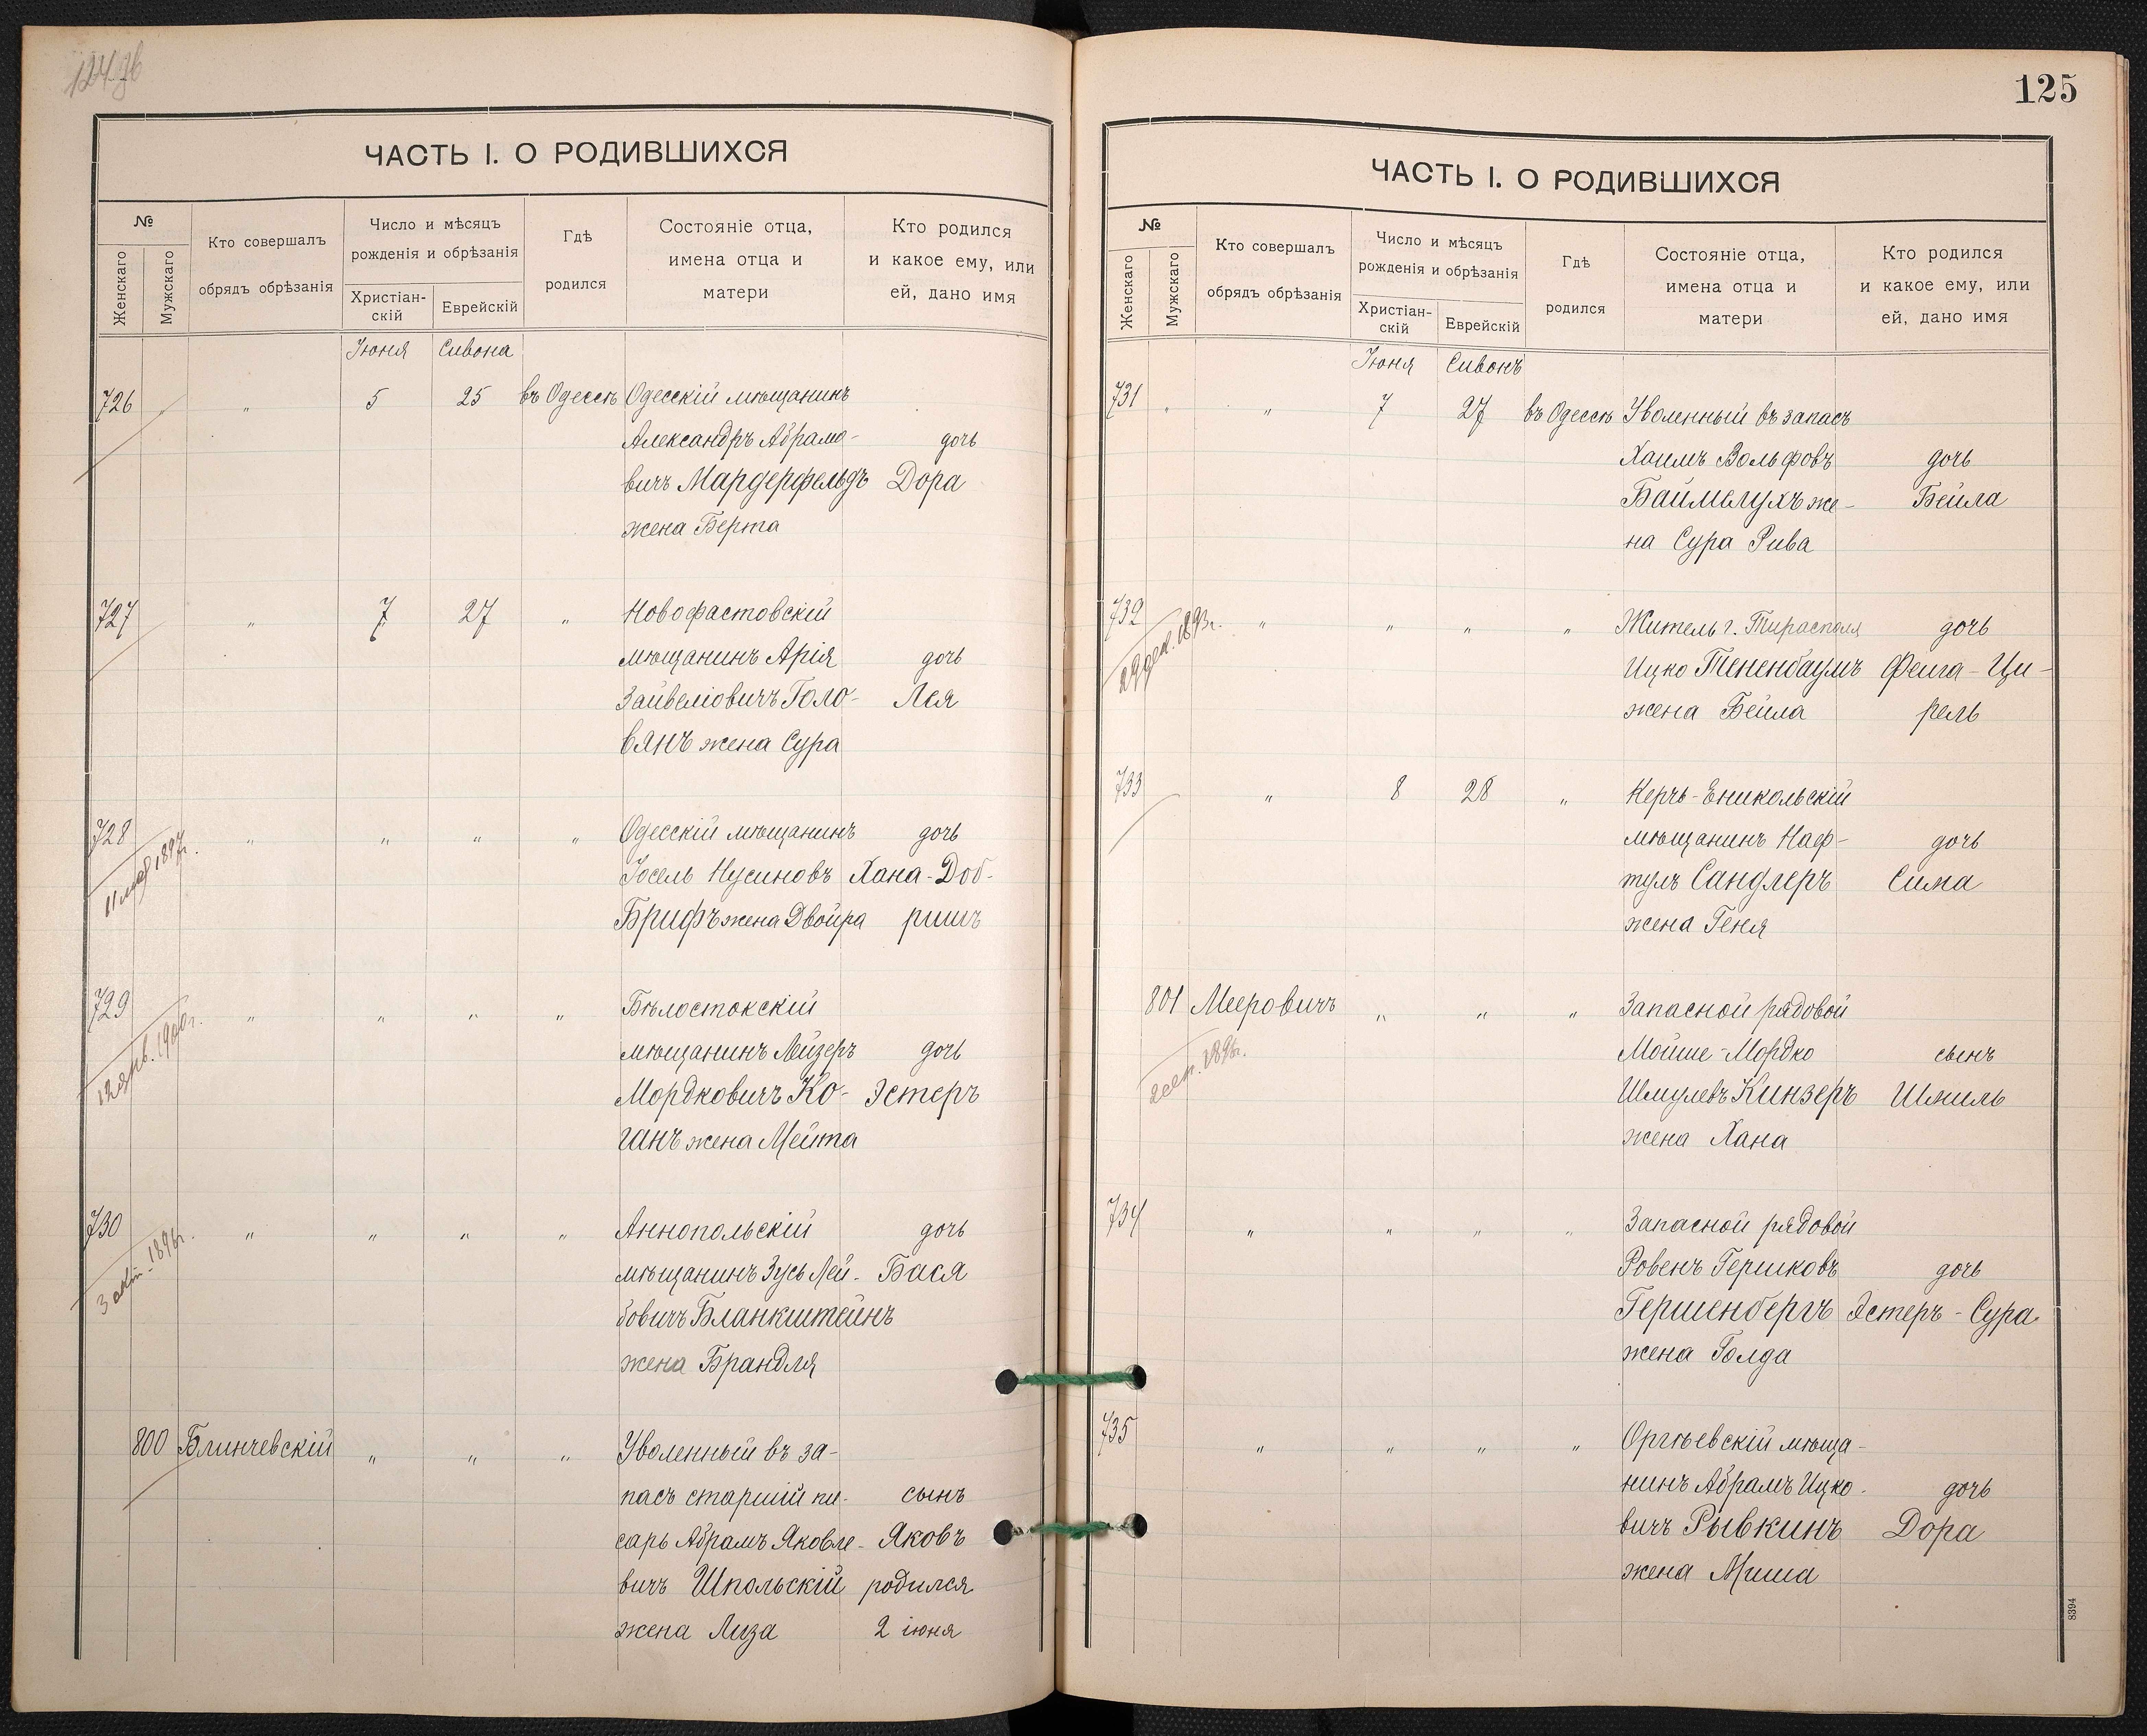 ЧАСТЬ I. О РОДИВШИХСЯ
№
Женскаго
Мужскаго
Кто совершалъ
обрядъ обрѣзанія
Число и мѣсяцъ
рожденія и обрѣзанія
Христіан-
скій
Еврейскій
Гдѣ
родился
Состояніе отца,
имена отца и
матери
Кто родился
и какое ему, или
ей, дано имя
Іюня Сивона
726 " 5 25 въ Одессѣ Одесскій мѣщанинъ
Александръ Абрамо- дочь
вичъ Мардерфельдъ Дора
жена Берта
727 " 7 27 " Новофастовскій
мѣщанинъ Арія дочь
Зайвеліовичъ Голо- Лея
ванъ жена Сура
728 " " " " Одесскій мѣщанинъ дочь
1897г.
Іосель Нусиновъ Хана-Доб-
Брифъ жена Двойра ришъ
729 " " " " Бѣлостокскій
12 янв. 1900г.
мѣщанинъ Лейзеръ дочь
Мордковичъ Ко- Эстеръ
ганъ жена Мейта
730 " " " " Аннопольскій дочь
3 1896г.
мѣщанинъ Зусь Лей- Бася
бовичъ Бланкштейнъ
жена Брандля
800 Блинчевскій " " " Уволенный въ за-
пасъ старшій пи- сынъ
сарь Абрамъ Яковле- Яковъ
вичъ Шпольскій родился
жена Лиза 2 іюня
125
ЧАСТЬ I. О РОДИВШИХСЯ
№
Женскаго
Мужскаго
Кто совершалъ
обрядъ обрѣзанія
Число и мѣсяцъ
рожденія и обрѣзанія
Христіан-
скій
Еврейскій
Гдѣ
родился
Состояніе отца,
имена отца и
матери
Кто родился
и какое ему, или
ей, дано имя
Іюня Сивонъ
731 " " 7 27 въ Одессѣ Уволенный въ запасъ
Хаимъ Вольфовъ дочь
Баймелухъ же- Бейла
на Сура Рива
732 " " " " Житель г. Тирасполя дочь
29 дек. 1893г.
Ицко Тененбаумъ Фейга-Ци-
жена Бейла рель
733 " 8 28 " Керчь-Еникольскій
мѣщанинъ Наф- дочь
тулъ Сандлеръ Сима
жена Геня
801 Мееровичъ " " " Запасной рядовой
1896г.
Мойше-Мордко сынъ
Шмулевъ Кинзеръ Шмиль
жена Хана
734 " " " " Запасной рядовой
Ровенъ Гершковъ дочь
Гершенбергъ Эстеръ-Сура
жена Голда
735 " " " " Оргѣевскій мѣща-
нинъ Абрамъ Ицко- дочь
вичъ Рывкинъ Дора
жена Миша
8394